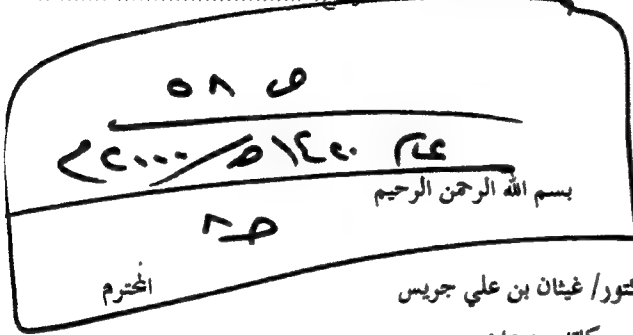 ص ٥٨
عام ١٤٢٠هـ/٢٠٠٠م
بسم الله الرحمن الرحيم
ص ٨
كتور/ غيثان بن علي جريس المحترم